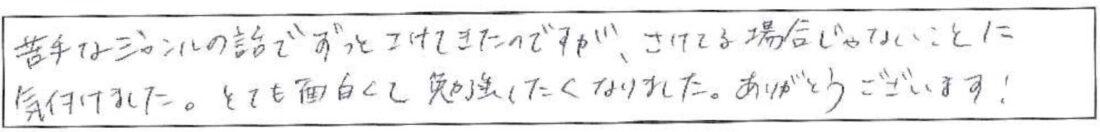 苦手なジャンルの話でずっとさけてきたのですが、さけてる場合じゃないことに
気付けました。とても面白くて勉強したくなりました。ありがとうございます!